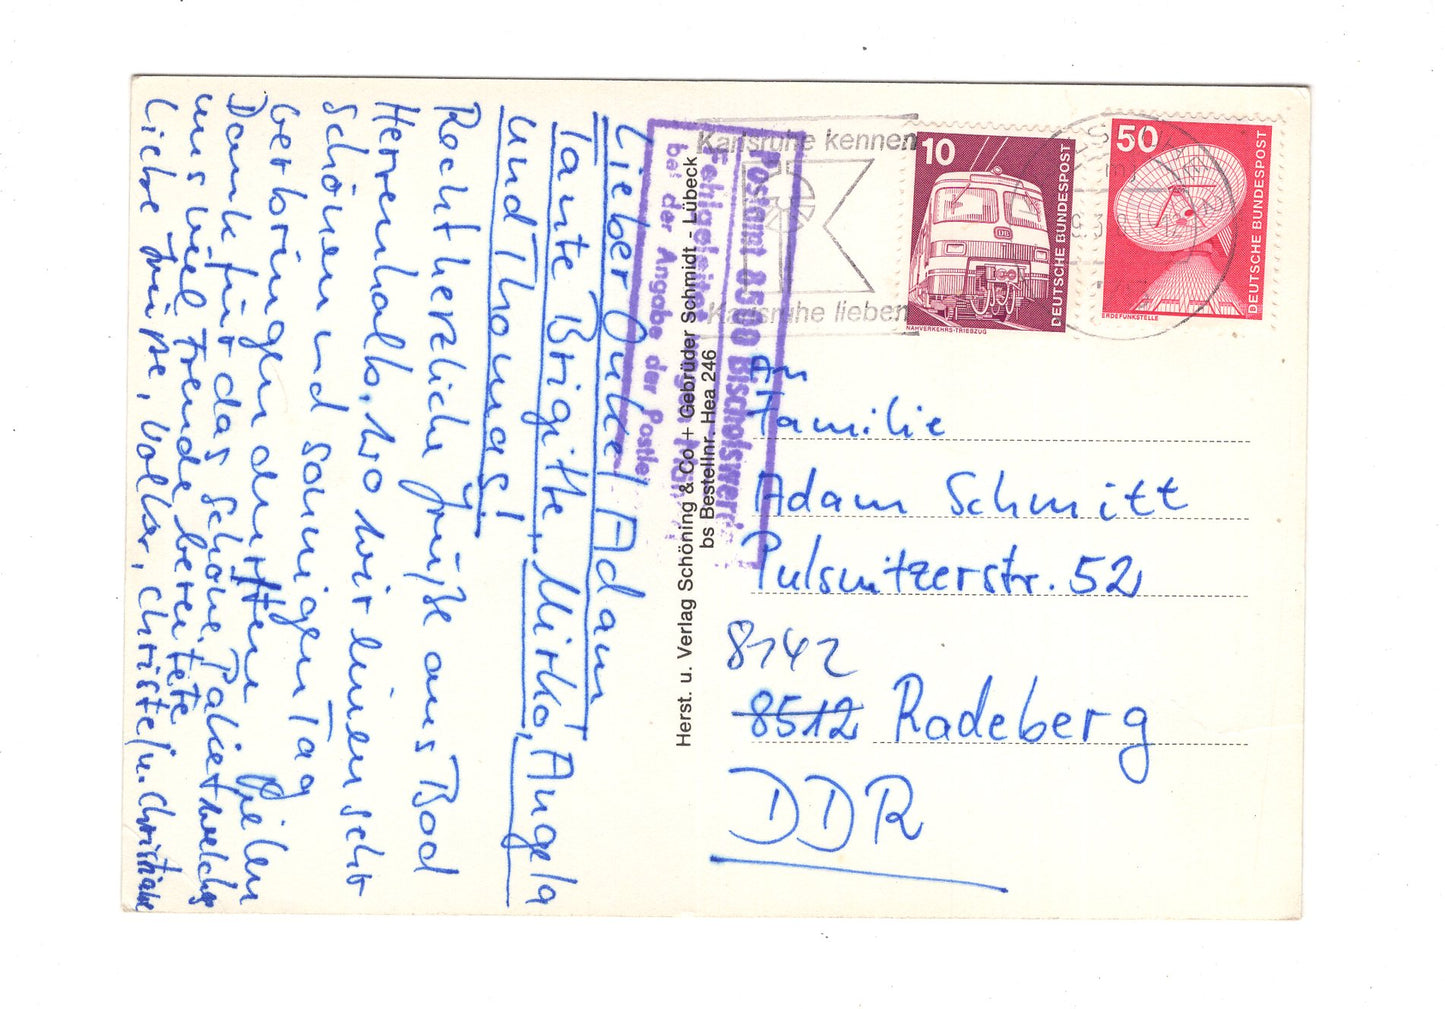 Lieber Onkel Adam
Tante Brigitte, Mirko, Angela
und Thomas!
Recht herzliche Grüße aus Bad
Herrenalb, wo wir einen sehr
schönen und sonnigen Tag
verbringen durften. Vielen
Dank für das schöne Paket welches
uns viel Freude bereitete
Liebe Grüße, Volker, Christel u. Christiane
Herst. u. Verlag Schöning & Co + Gebrüder Schmidt - Lübeck
bs Bestellnr. Hea 246
Postamt 8500 Bischofswerda
Fehlgeleitet
bei der Angabe der Postlei
Karlsruhe kennen
Karlsruhe lieben
10
DEUTSCHE BUNDESPOST
NAHVERKEHRS-TRIEBZUG
50
DEUTSCHE BUNDESPOST
ERDEFUNKSTELLE
An
Familie
Adam Schmitt
Pulsnitzerstr. 52
8142
8512 Radeberg
DDR